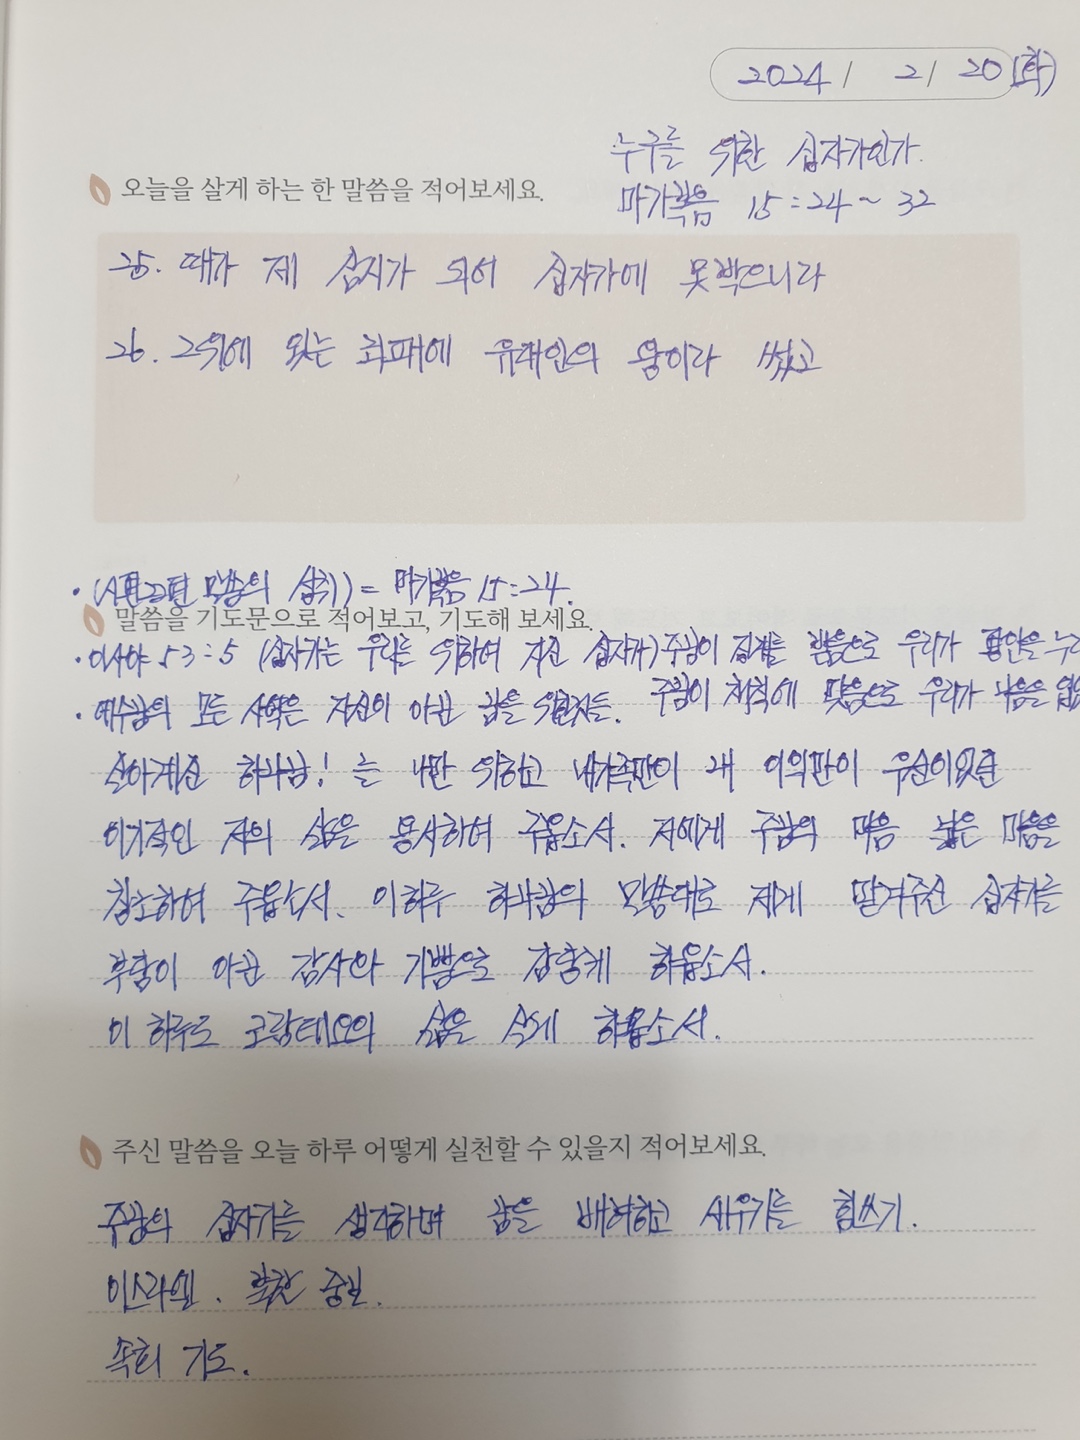 2024 / 2 / 20 (화)
누구를 위한 십자가인가.
오늘을 살게 하는 한 말씀을 적어보세요.
마가복음 15:24~32
25. 때가 제 삼시가 되어 십자가에 못박으니라
26. 그위에 있는 죄패에 유대인의 왕이라 썼고
· (시편22편 말씀의 성취) = 마가복음 15:24.
말씀을 기도문으로 적어보고, 기도해 보세요.
· 이사야 53:5 (십자가는 우리를 위하여 지신 십자가) 주님이 징계를 받음으로 우리가 평안을 누리
· 예수님의 모든 사역은 자신이 아닌 남을 주님이 채찍에 맞음으로 우리가 나음을
살아계신 하나님! 늘 나만 위하고 내가족만이 내 이익만이 우선이었던
이기적인 저의 삶을 용서하여 주옵소서. 저에게 주님의 마음 넓은 마음을
창조하여 주옵소서. 이하루 하나님의 말씀대로 제게 맡겨주신 십자가를
부담이 아닌 감사와 기쁨으로 감당케 하옵소서.
이 하루도 코람데오의 삶을 살게 하옵소서.
주신 말씀을 오늘 하루 어떻게 실천할 수 있을지 적어보세요.
주님의 십자가를 생각하며 남을 배려하고 세우기를 힘쓰기.
이스라엘.
속회 기도.